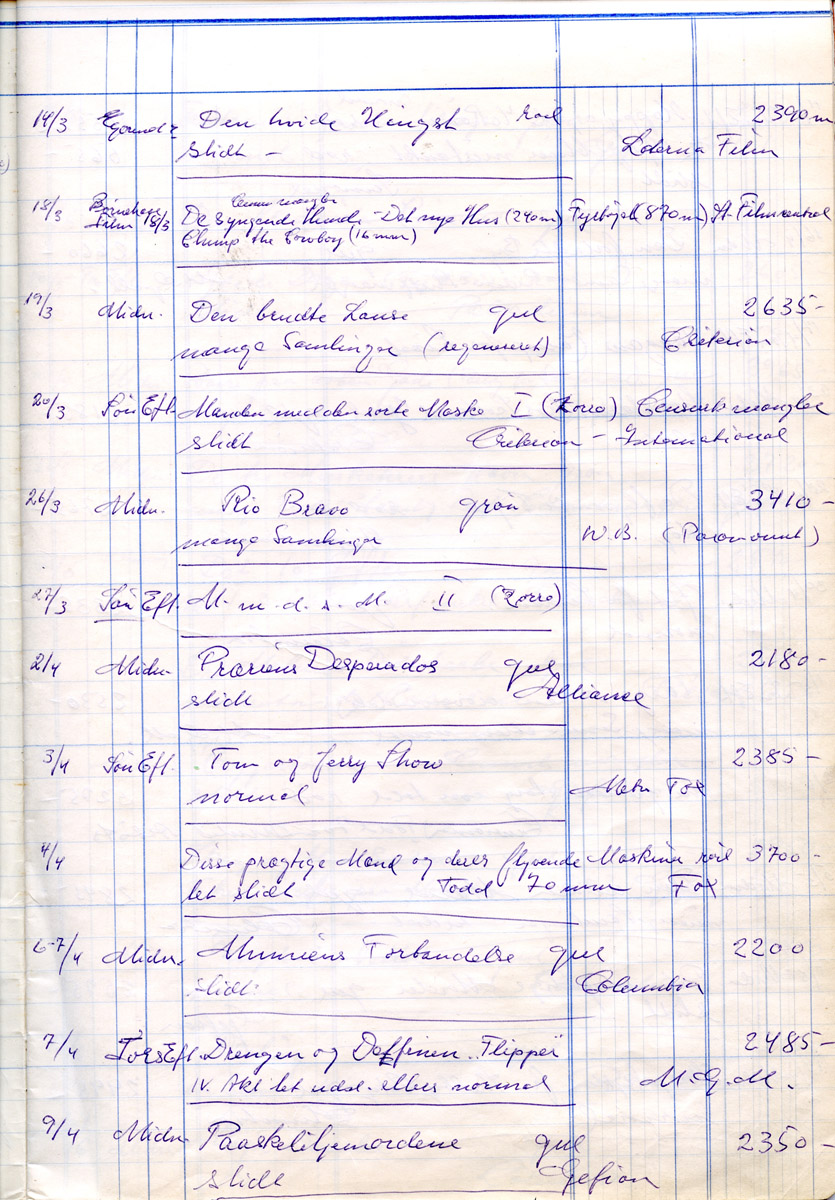 14/3 Den hvide Hingst röd 2390 m
slidt – Film
18/3 Börnehave Censur mangler
Film 18/3 De syngende Hunde – Det nye Hus (240 m) Fyrtöjet (870 m) St. Filmcentral
the Cowboy (16 mm)
19/3 Midn. Den brudte Lanse gul 2635 –
mange Samlinger (regenereret) Criterion
20/3 Sön Eft. Manden med den sorte Maske I (Zorro) Censurk. mangler
slidt Criterion – International
26/3 Midn. Rio Bravo grön 3410 –
mange Samlinger W.B. (Paramount)
27/3 Sön Eft. M. m. d. s. M. II (Zorro)
2/4 Midn. Præriens Desperados gul 2180 –
slidt Alliance
3/4 Sön Eft. Tom og Jerry Show 2385 –
normal Metro Fox
4/4 Disse prægtige Mænd og deres flyvende Maskiner röd 3700 –
let slidt Todd 70 mm Fox
6-7/4 Midn. Mumiens Forbandelse gul 2200
slidt. Columbia
7/4 Tors Eft. Drengen og Delfinen "Flipper" 2485 –
IV. Akt let udsl. ellers normal M.G.M.
9/4 Midn Paaskeliljemordene gul 2350 –
slidt Gefion